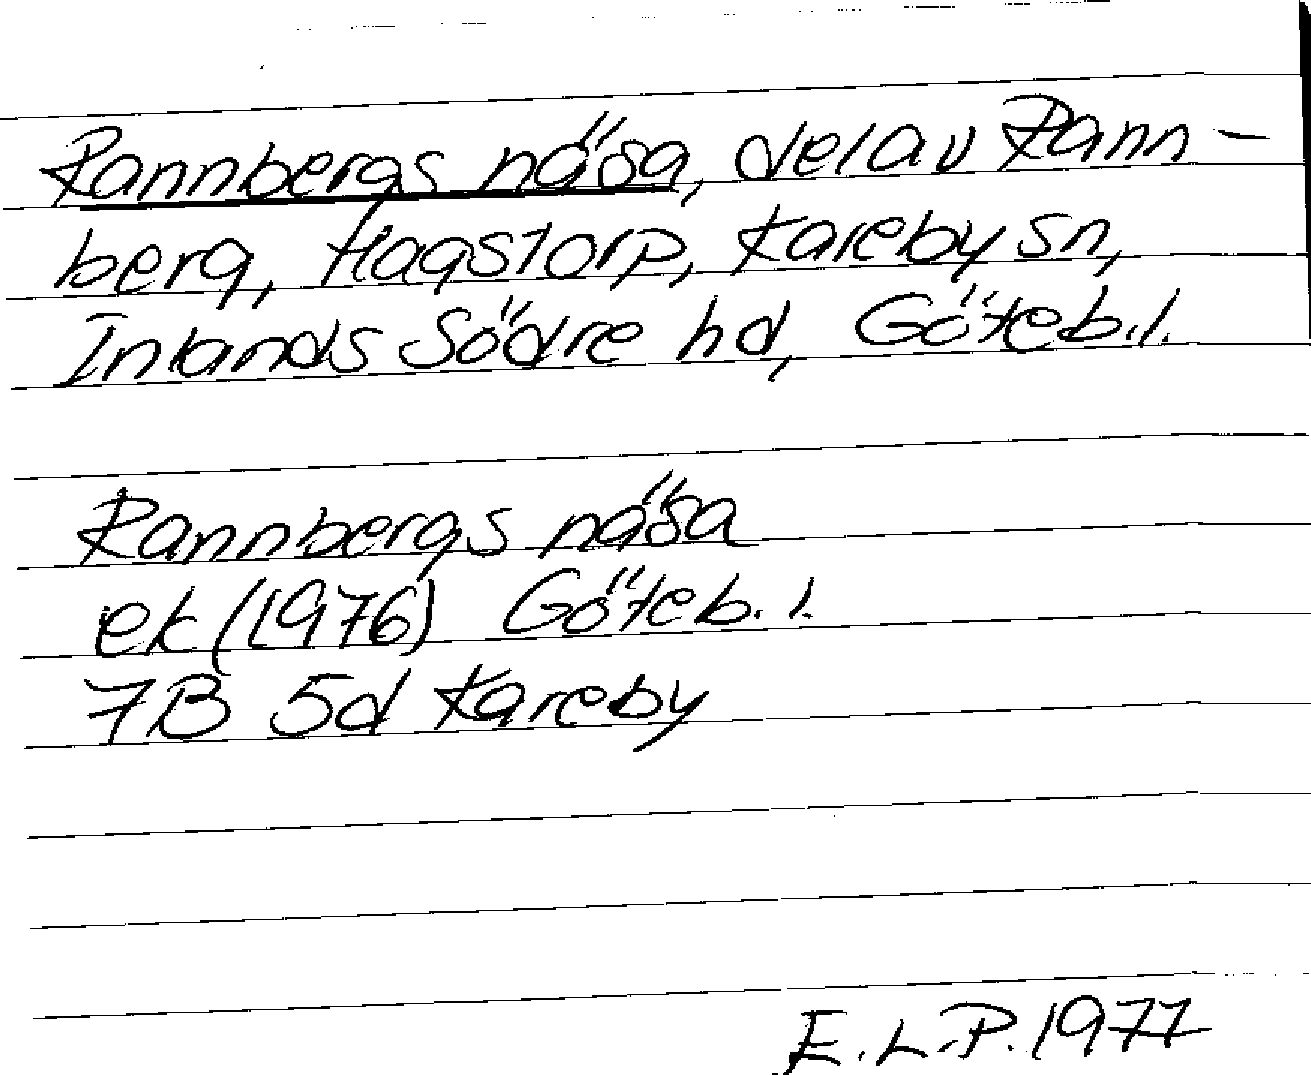 Rannbergs näsa, del av Rann-
berg, Hagstorp, Kareby sn,
Inlands Södre hd, Göteb.l.
Rannbergs näsa
ek (1976) Göteb. l.
7B 5d Kareby
E.L.P. 1977